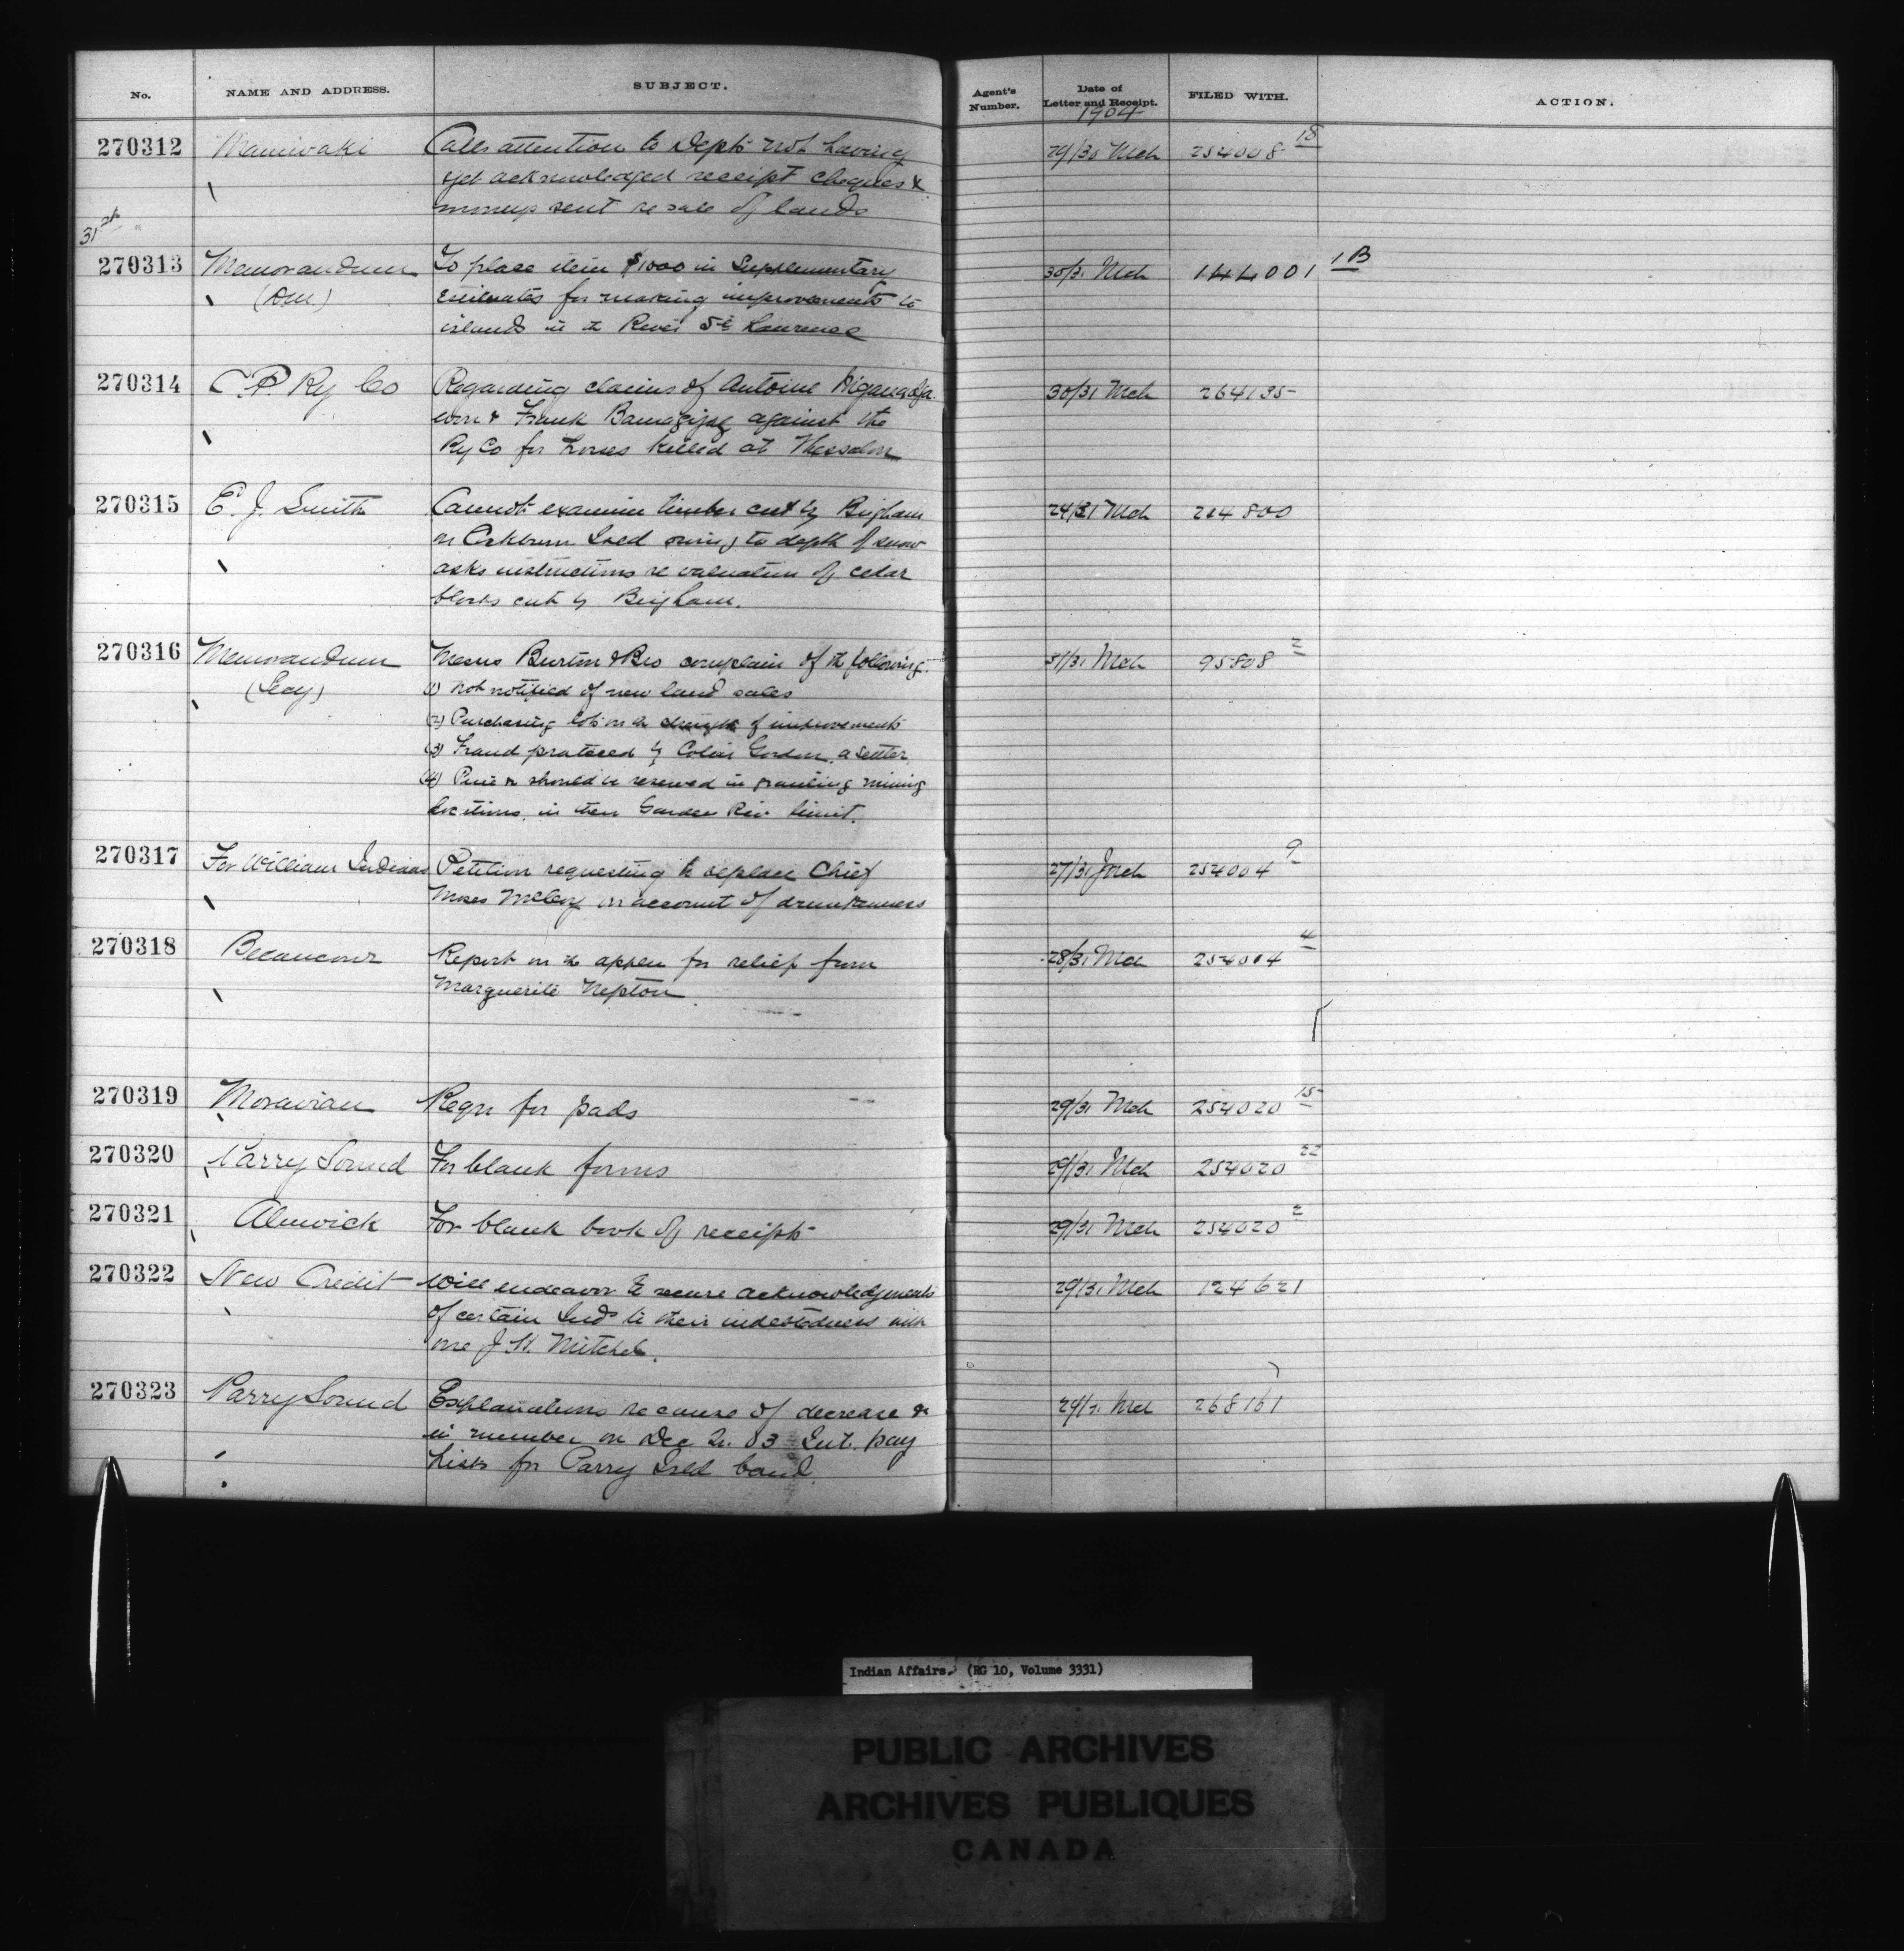 No. NAME AND ADDRESS. SUBJECT. Agent's Number. Date of Letter and Receipt. FILED WITH. ACTION.
1904
270312 Maniwaki Calls attention to Dept's not having 29/30 Mch 254008 18
yet acknowledged receipt cheques &
moneys sent re sale of lands
31st
270313 Memorandum To place item $1000 in Supplementary 30/31 Mch 144001 1B
(DM) Estimates for making improvements to
islands in the River St Lawrence
270314 C P Ry Co Regarding claims of Antoine 30/31 Mch 264135
& Frank against the
Ry Co for horses killed at Thessalon
270315 E. J. Smith Cannot examine timber cut by Brigham 24/31 Mch 214800
on Cockburn Isld owing to depth of snow
asks instructions re valuation of cedar
blocks cut by Brigham.
270316 Memorandum Messrs Burton & Bro complain of the following. 31/31 Mch 95808 2
(Secy) (1) Not notified of new land sales
(2) Purchasing lots on the strength of improvements
(3) Fraud practiced by Colin Gordon, a settler
(4) Pine should be reserved in granting mining
locations in their Garden Riv. limit.
270317 For William Indians Petition requesting to replace Chief 27/31 Mch 254004 9
Moses on account of drunkenness
270318 Becancour Report on the appln for relief from 28/31 Mch 254014 4
Marguerite Nepton
270319 Moravian Reqn for pads 29/31 Mch 254020 15
270320 Parry Sound For blank forms 29/31 Mch 254020 22
270321 Alnwick For blank book of receipts 29/31 Mch 254020 2
270322 New Credit Will endeavor to secure acknowledgments 29/31 Mch 124621
of certain Inds to their indebtedness with
one J. H. Mitchel.
270323 Parry Sound Explanations re cause of decrease & 29/31 Mch 268161
in number on Dec 03 Int. pay
Lists for Parry Isld band.
Indian Affairs. (RG 10, Volume 3331)
PUBLIC ARCHIVES
ARCHIVES PUBLIQUES
CANADA